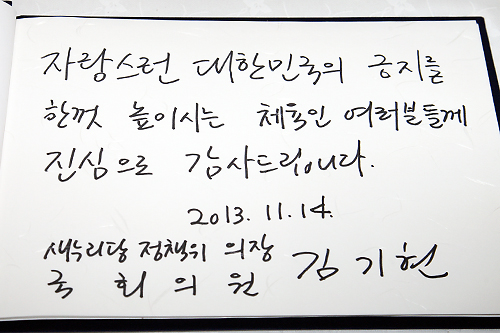 자랑스런 대한민국의 긍지를
한껏 높이시는 체육인 여러분들께
진심으로 감사드립니다.
2013. 11. 14.
새누리당 정책위 의장
국회의원 김기현